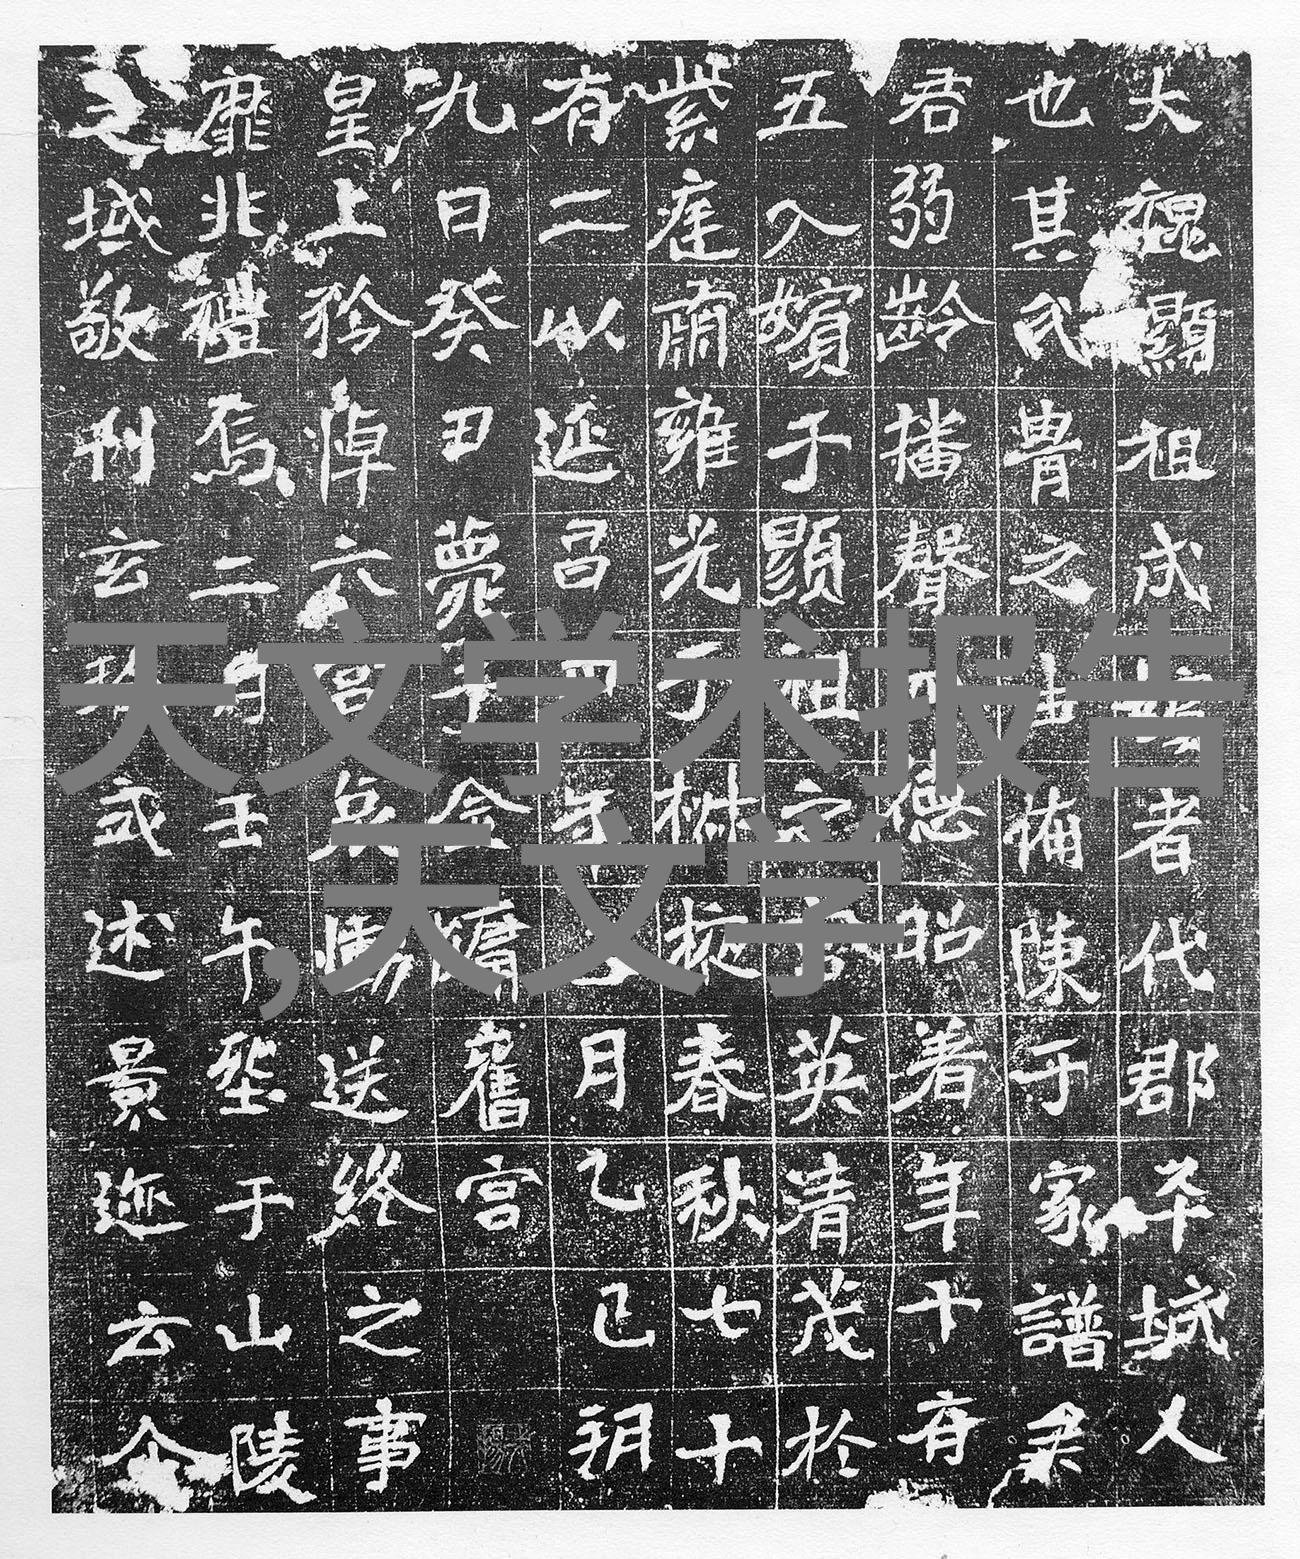 大魏顯祖成嬪者代郡平城人
也其氏胄之由備陳于家譜
君弱齡播聲德昭著年十有
五入嬪于顯祖英清茂於
紫庭肅雍光于椒掖春秋七十
有二以延昌四年正月乙巳朔
九日癸丑薨于金墉舊宮
皇上矜悼六宮哀慟送終之事
靡非禮焉二月壬午堲于山陵
之域敬刊玄瑤式述景迹云
天文学术报告
,天文学